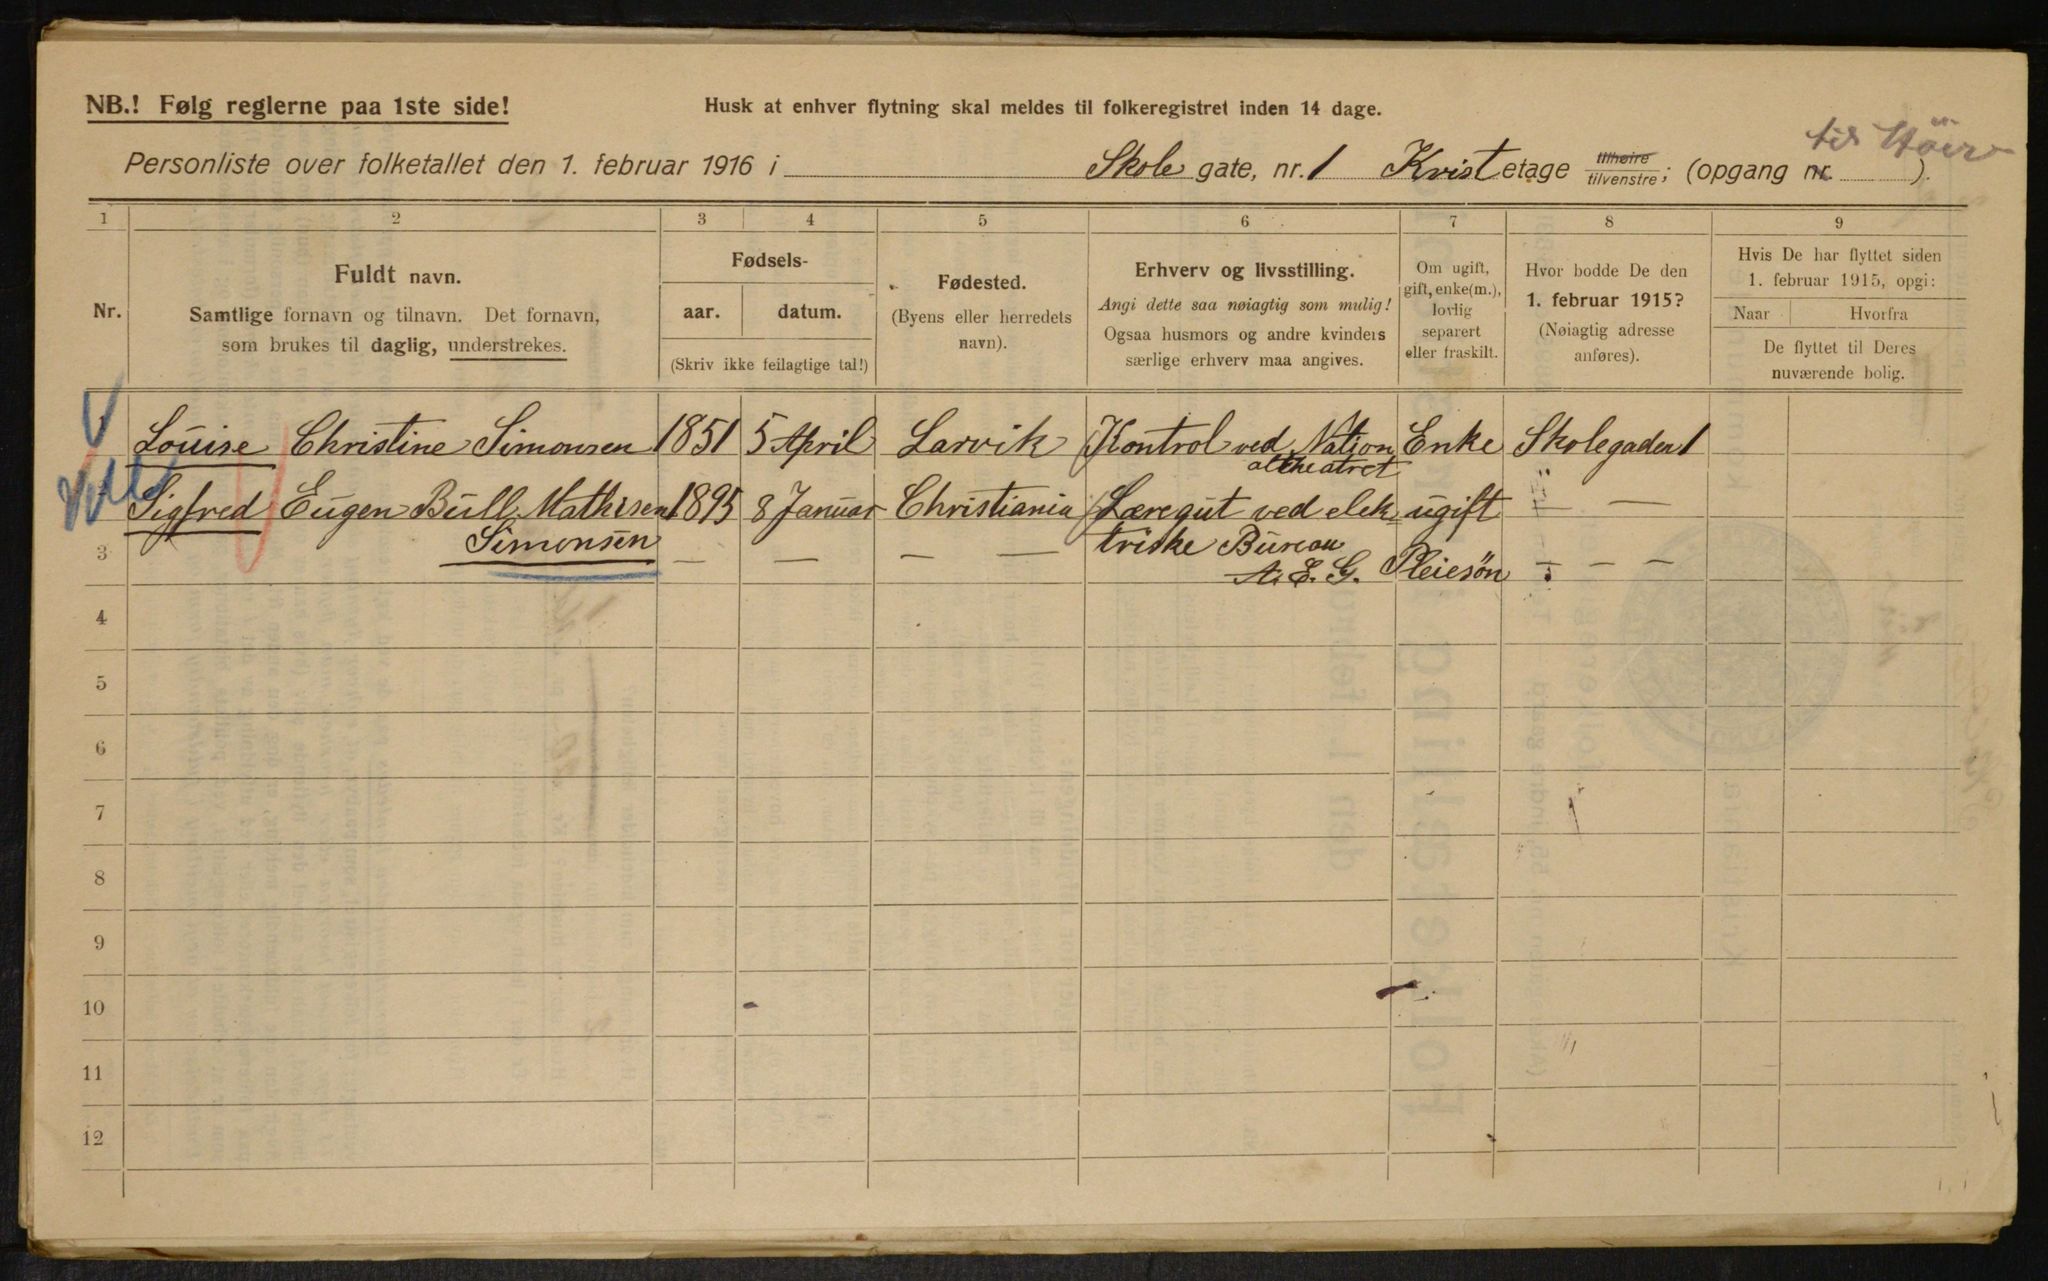 NB.! Følg reglerne paa 1ste side!
Husk at enhver flytning skal meldes til folkeregistret inden 14 dage.
Personliste over folketallet den 1. februar 1916 i Skole gate, nr. 1 Kvist etage tilhøire tilvenstre; (opgang nr. ).
1 2 3 4 5 6 7 8 9
Nr.
Fuldt navn.
Samtlige fornavn og tilnavn. Det fornavn,
som brukes til daglig, understrekes.
Fødsels-
aar. datum.
(Skriv ikke feilagtige tal!)
Fødested.
(Byens eller herredets
navn).
Erhverv og livsstilling.
Angi dette saa nøiagtig som mulig!
Ogsaa husmors og andre kvinders
særlige erhverv maa angives.
Om ugift,
gift, enke(m.),
lovlig
separert
eller fraskilt.
Hvor bodde De den
1. februar 1915?
(Nøiagtig adresse
anføres).
Hvis De har flyttet siden
1. februar 1915, opgi:
Naar Hvorfra
De flyttet til Deres
nuværende bolig.
Louise Christine Simonsen 1851 5 April Larvik Kontrol ved Nation Enke Skolegaden 1
altheatret
Sigfred Eugen Bull Mathisen 1895 8 Januar Christiania Læregut ved elek= ugift — " —
3 Simonsen — — — — triske Bureau
A. E. G. Pleiesön — — —
4
5
6
7
8
9
10
11
12